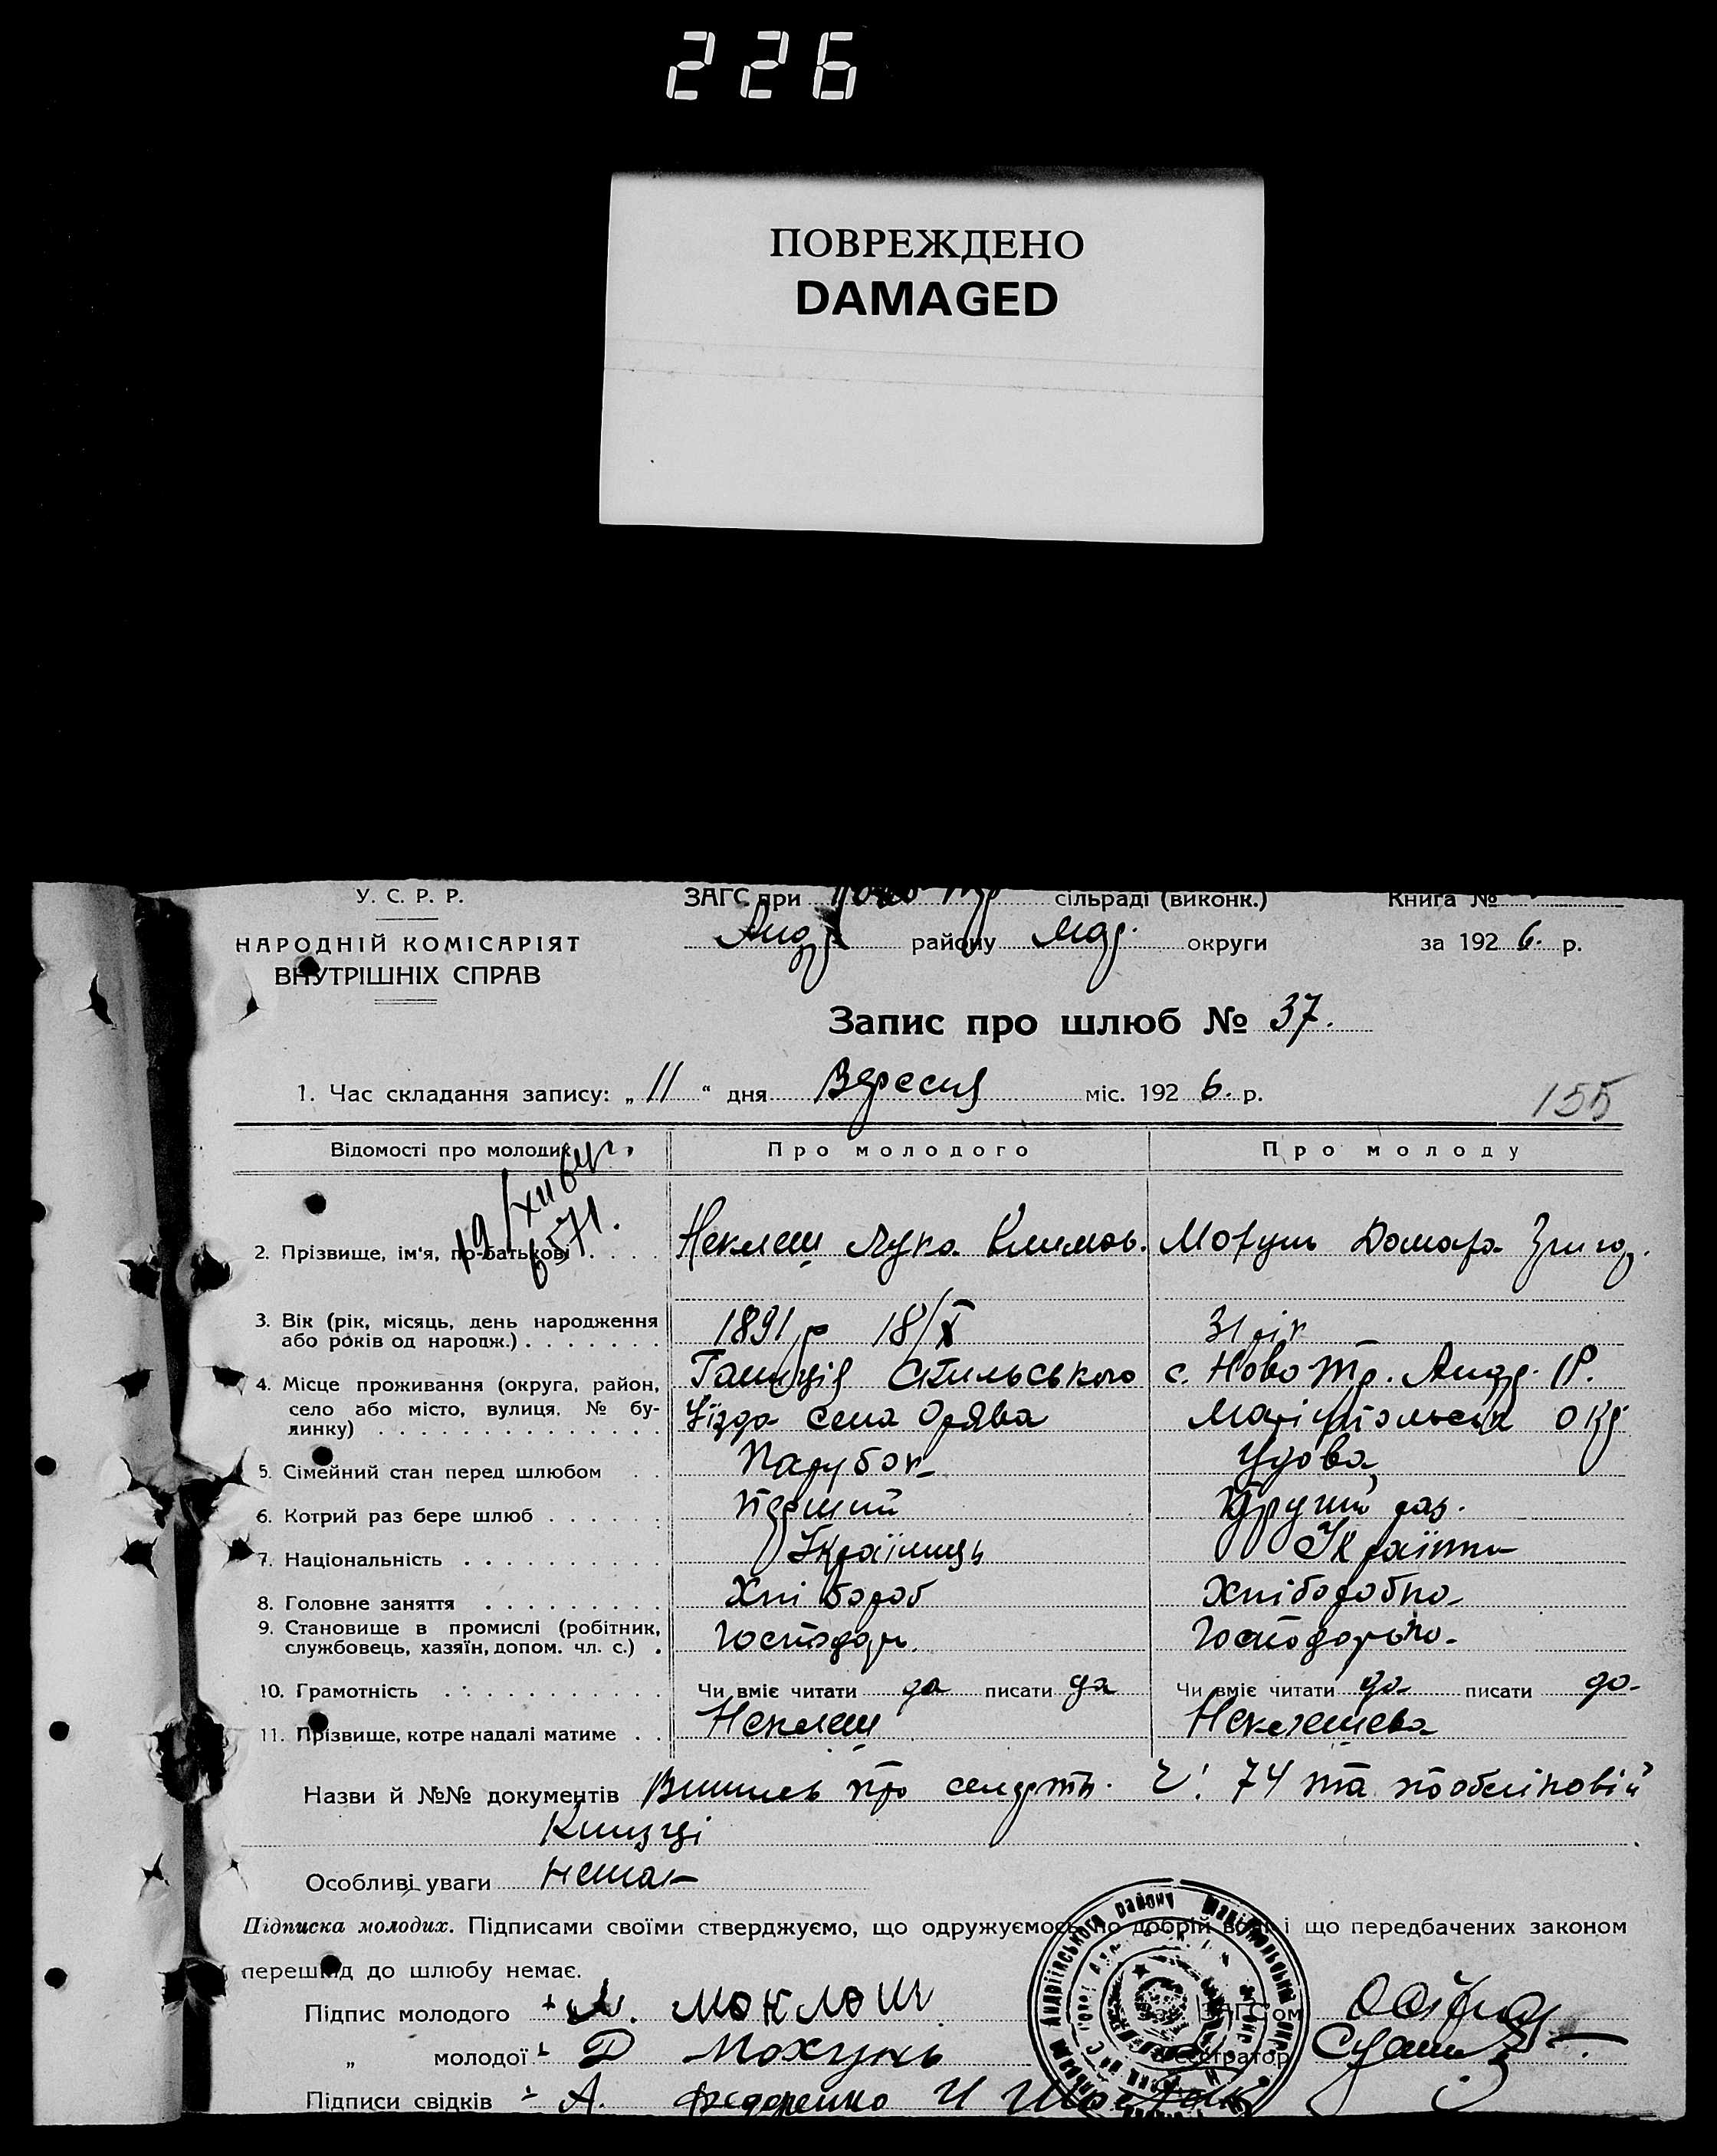 226
ПОВРЕЖДЕНО
DAMAGED
У. С. Р. Р.
НАРОДНІЙ КОМІСАРІЯТ
ВНУТРІШНІХ СПРАВ
ЗАГС при Ново Тр сільраді (виконк.)
Книга №
Андр района Мар. округи
за 1926. р.
Запис про шлюб № 37.
1. Час складання запису: „11“ дня Вересня міс. 1926. р.
155
Відомості про молодих
Про молодого
Про молоду
2. Прізвище, ім'я, по-батькові . . . .
Неклеш Лука Климов.
Мохунь Домаха Григор.
3. Вік (рік, місяць, день народження
або років од народж.) . . . . . . .
1891 р 18/X
31 рік
4. Місце проживання (округа, район,
село або місто, вулиця, № бу-
динку) . . . . . . . . . . . . . .
Галиція Стильського
Уїзда села Орява
с. Ново Тр. Андр. Р.
Маріупольськ окр
5. Сімейний стан перед шлюбом . .
Парубок
Удова
6. Котрий раз бере шлюб . . . . . .
перший
Другий раз.
7. Національність . . . . . . . . . .
Українець
Українка
8. Головне заняття . . . . . . . . .
Хлібороб
Хліборобка
9. Становище в промислі (робітник,
службовець, хазяїн, допом. чл. с.) .
Господарь.
Господарька
10. Грамотність . . . . . . . . . . .
Чи вміє читати да писати да
Чи вміє читати да писати да
11. Прізвище, котре надалі матиме . .
Неклеш
Неклешева
Назви й №№ документів Випись про смерть. Ч. 74 та по обліковій
Книзці
Особливі уваги Немає
Підписка молодих. Підписами своїми стверджуємо, що одружуємось по добрій волі і що передбачених законом
перешкід до шлюбу немає.
Підпис молодого Л. Меклеш
„ молодої Д Мохунь
Реєстратор
Підписи свідків А. Федеренко И